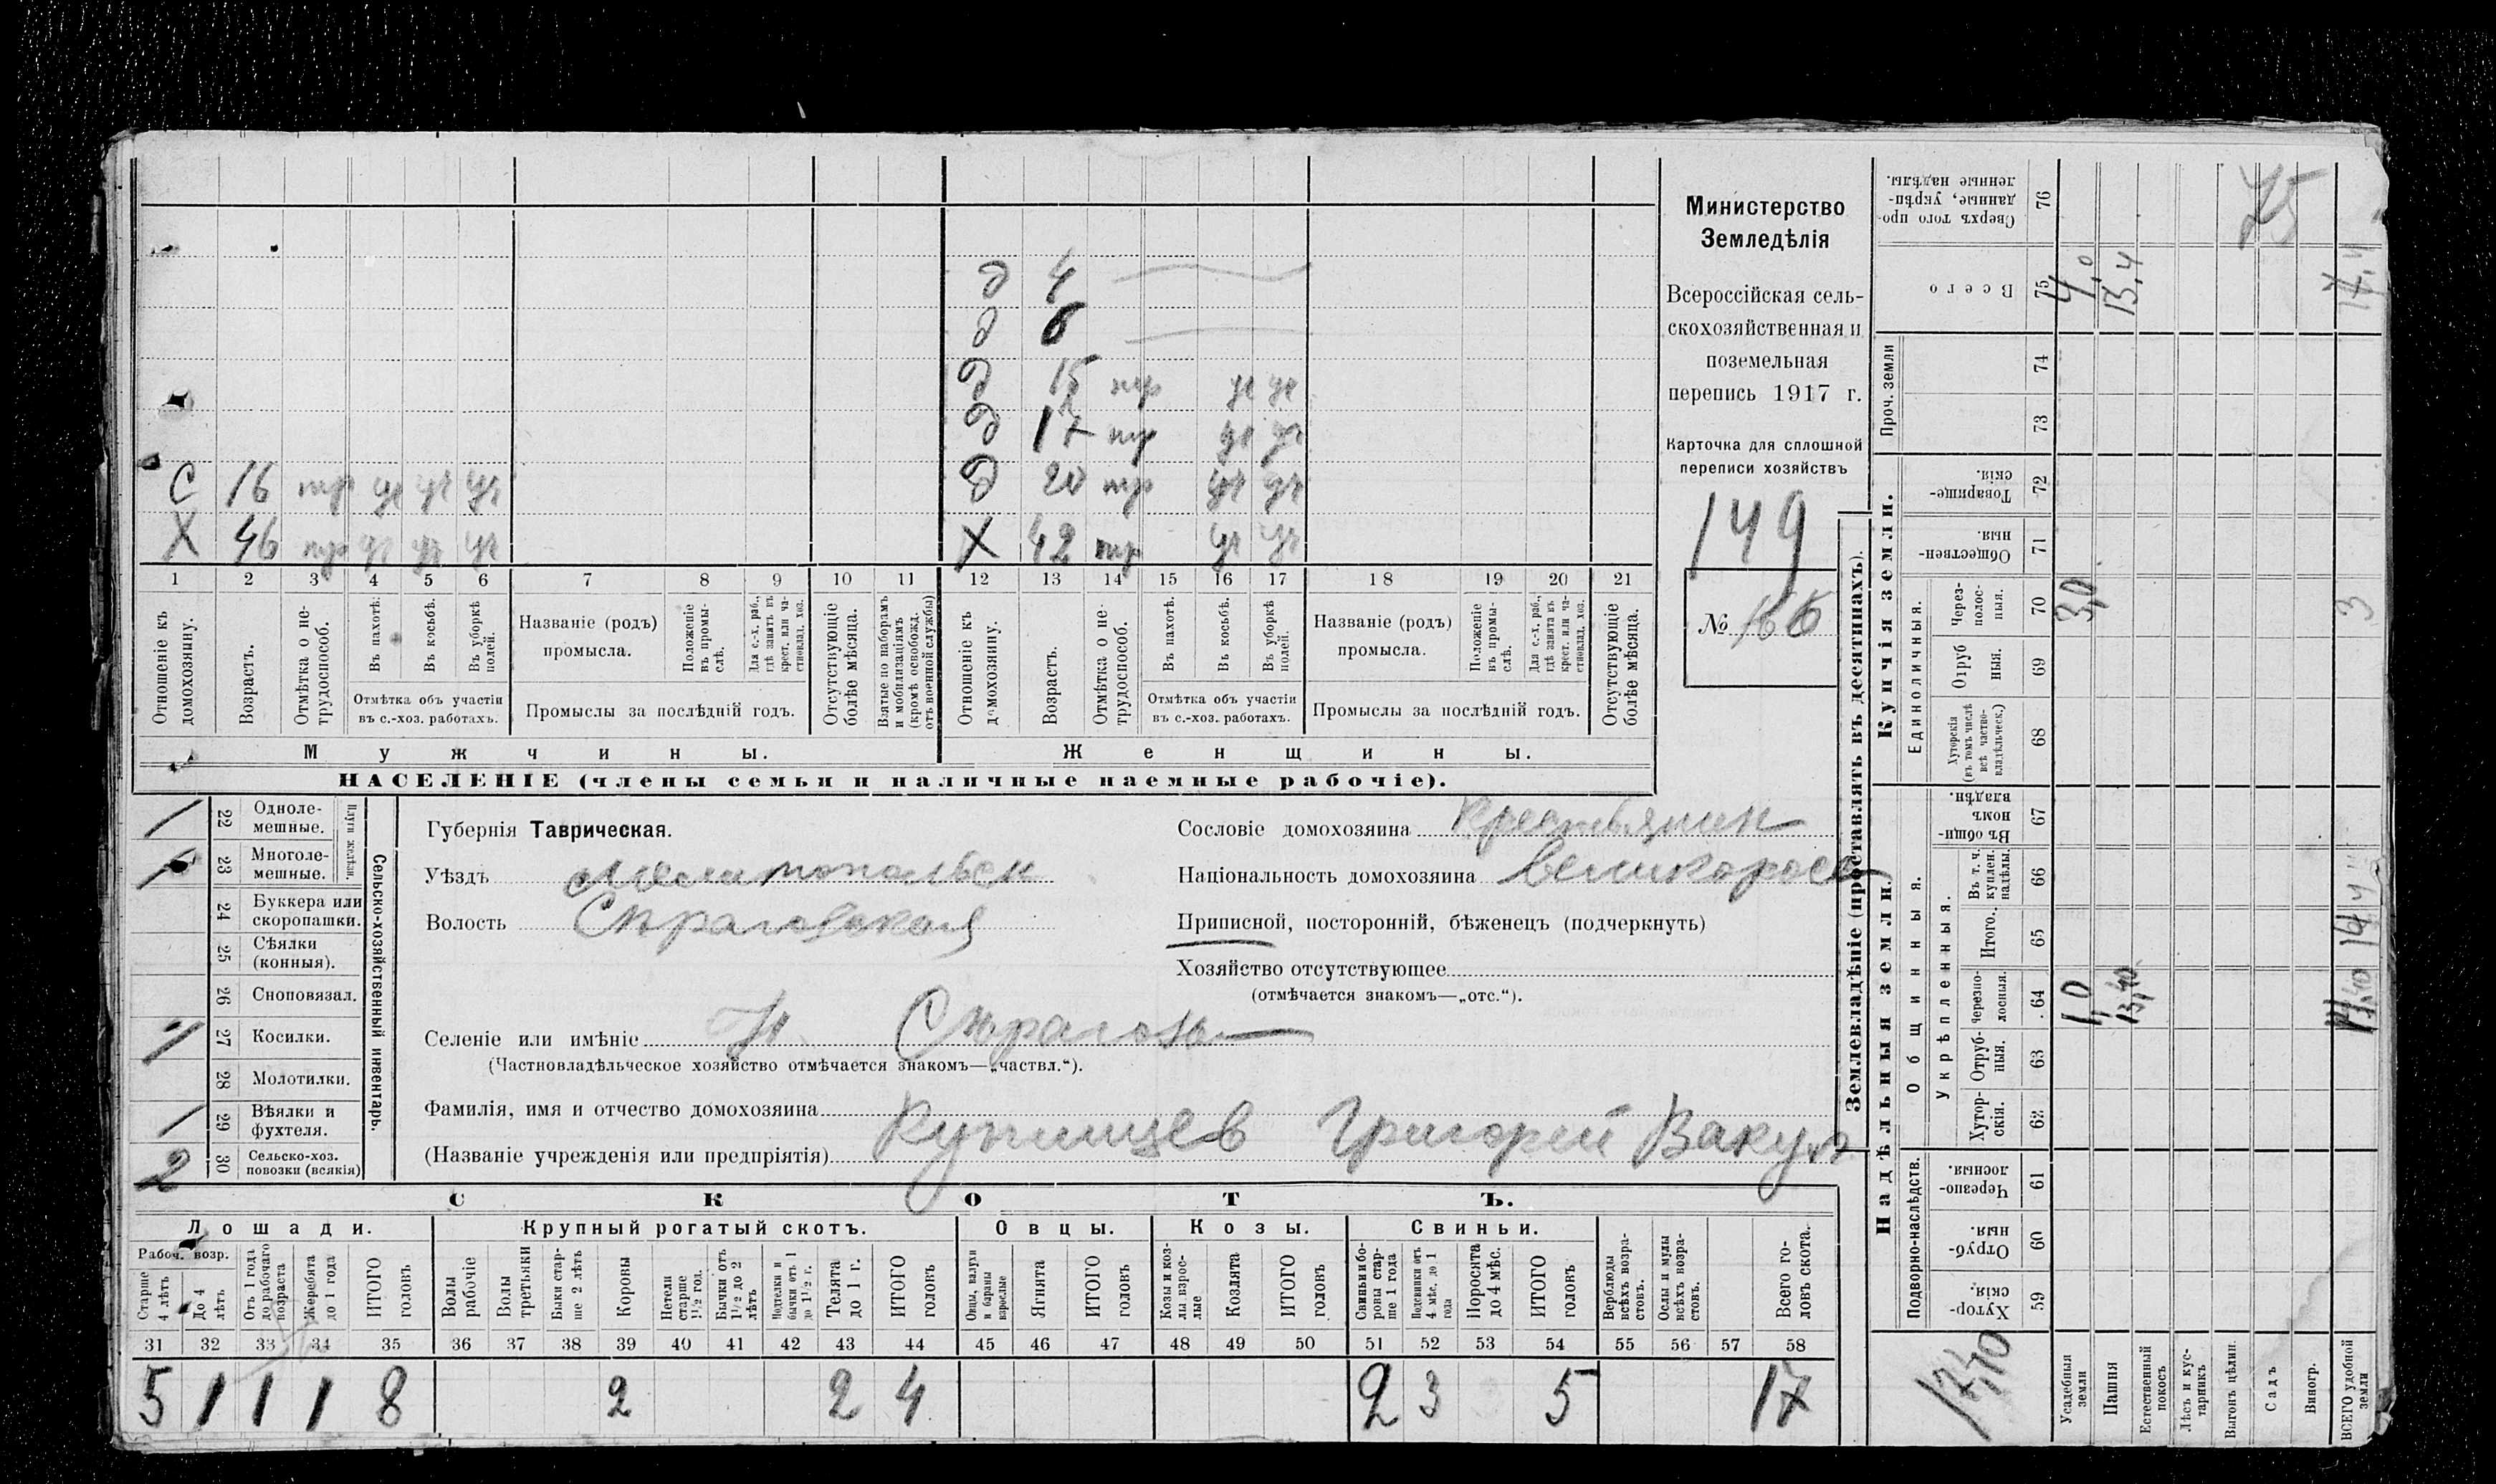 Министерство
Земледѣлія
Всероссійская сель-
скохозяйственная и
поземельная
перепись 1917 г.
Карточка для сплошной
переписи хозяйствъ
149
№ 166
д 4
д 6
д 15 тр уч уч
д 17 тр уч уч
С 16 тр уч уч уч д 20 тр уч уч
Х 46 тр уч уч уч Х 42 тр уч уч
1 2 3 4 5 6 7 8 9 10 11 12 13 14 15 16 17 18 19 20 21
Отношеніе къ домохозяину.
Возрастъ.
Отмѣтка о не-трудоспособ.
Въ пахотѣ.
Въ косьбѣ.
Въ уборкѣ полей.
Отмѣтка объ участіи
въ с.-хоз. работахъ.
Названіе (родъ)
промысла.
Положеніе въ промы-слѣ.
Для с.-х. раб., гдѣ занятъ въ крест. или ча-стновлад. хоз.
Промыслы за послѣдній годъ.
Отсутствующіе болѣе мѣсяца.
Взятые по наборамъ и мобилизаціямъ (кромѣ освобожд. отъ военной службы)
Отношеніе къ домохозяину.
Возрастъ.
Отмѣтка о не-трудоспособ.
Въ пахотѣ.
Въ косьбѣ.
Въ уборкѣ полей.
Отмѣтка объ участіи
въ с.-хоз. работахъ.
Названіе (родъ)
промысла.
Положеніе въ промы-слѣ.
Для с.-х. раб., гдѣ занята въ крест. или ча-стновлад. хоз.
Промыслы за послѣдній годъ.
Отсутствующіе болѣе мѣсяца.
Мужчины. Женщины.
НАСЕЛЕНІЕ (члены семьи и наличные наемные рабочіе).
Сельско-хозяйственный инвентарь.
Плуги желѣзн.
/ 22 Одноле-мешные.
/ 23 Многоле-мешные.
24 Буккера или скоропашки.
25 Сѣялки (конныя).
26 Сноповязал.
/ 27 Косилки.
28 Молотилки.
/ 29 Вѣялки и фухтеля.
2 30 Сельско-хоз. повозки (всякія)
Губернія Таврическая.
Уѣздъ Мелитопольск
Волость
Сословіе домохозяина Крестьянин
Національность домохозяина великоросс
Приписной, посторонній, бѣженецъ (подчеркнуть)
Хозяйство отсутствующее
(отмѣчается знакомъ—„отс.“).
Селеніе или имѣніе
(Частновладѣльческое хозяйство отмѣчается знакомъ—„частвл.“).
Фамилія, имя и отчество домохозяина
(Названіе учрежденія или предпріятія) Григорей Вакул
СКОТЪ.
Лошади. Крупный рогатый скотъ. Овцы. Козы. Свиньи.
Рабоч. возр.
Старше 4 лѣтъ
До 4 лѣтъ
Отъ 1 года до рабочаго возраста
Жеребята до 1 года
ИТОГО головъ
Волы рабочіе
Волы третьяки
Быки стар-ше 2 лѣтъ
Коровы
Нетели старше 1½ год.
Бычки отъ 1½ до 2 лѣтъ
Подтелки и бычки отъ 1 до 1½ г.
Телята до 1 г.
ИТОГО головъ
Овцы, валухи и бараны взрослые
Ягнята
ИТОГО головъ
Козы и коз-лы взрос-лые
Козлята
ИТОГО головъ
Свиньи и бо-ровы стар-ше 1 года
Подсвинки отъ 4 мѣс. до 1 года
Поросята до 4 мѣс.
ИТОГО головъ
Верблюды всѣхъ возра-стовъ.
Ослы и мулы всѣхъ возра-стовъ.
Всего го-ловъ скота.
31 32 33 34 35 36 37 38 39 40 41 42 43 44 45 46 47 48 49 50 51 52 53 54 55 56 57 58
5 1 1 1 8 2 2 4 2 3 5 17
Землевладѣніе (проставлять въ десятинахъ).
Надѣльныя земли. Купчія земли. Проч. земли
Подворно-наслѣдств. Общинныя. Укрѣпленныя. Единоличныя.
Хутор-скія. 59
Отруб-ныя. 60
Черезпо-лосныя. 61
Хутор-скія. 62
Отруб-ныя. 63
Черезпо-лосныя. 64 1,0 13,40
Итого. 65
Въ т. ч. куплен. надѣлы. 66
Въ общи-номъ владѣн. 67
Хуторскія (въ томъ числѣ всѣ частно-владѣльческ.) 68
Отруб ныя. 69
Через-полос-ныя. 70 3,0 3
Обществен-ныя. 71
Товарище-скія. 72
73
74
Всего 75 4,0 13,4 17,4
Сверхъ того про-данные, укрѣп-ленные надѣлы. 76
75
Усадебныя земли
Пашня
Естественный покосъ
Лѣсъ и кус-тарникъ
Выгонъ цѣлин.
Садъ
Виногр.
ВСЕГО удобной земли